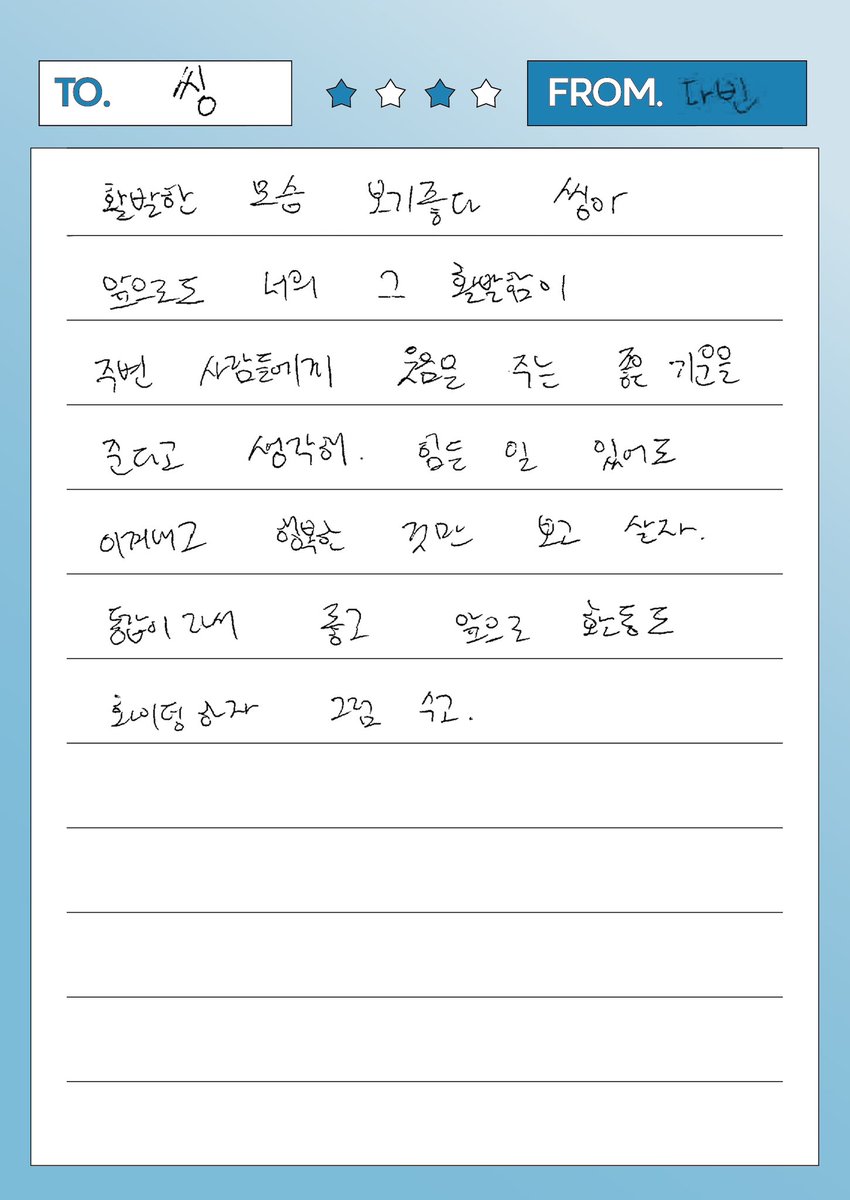 TO. 씽
FROM. 다빈
활발한 모습 보기좋다 씽아
앞으로도 너의 그 활발함이
주변 사람들에게 웃음을 주는 좋은 기운을
준다고 생각해. 힘든 일 있어도
이겨내고 행복한 것만 보고 살자.
좋고 앞으로 활동도
화이팅 하자 그럼 수고.